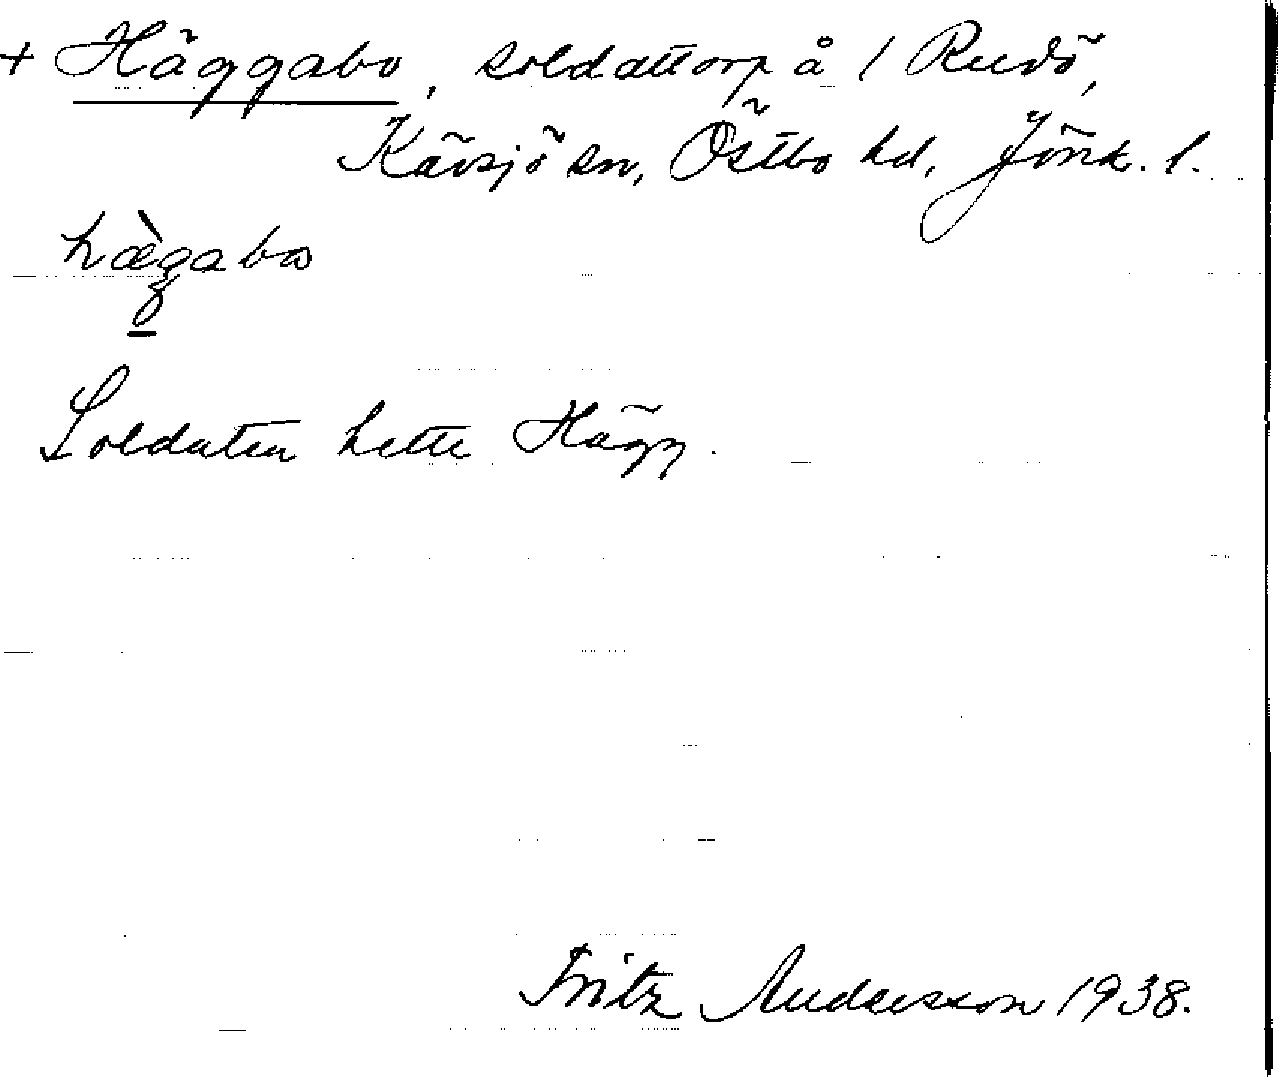 + Häggabo, soldattorp å 1 Rudö,
Kävsjö sn, Östbo hd, Jönk. l.
hæ̀gabo
Soldaten hette Hägg.
Fritz Andersson 1938.